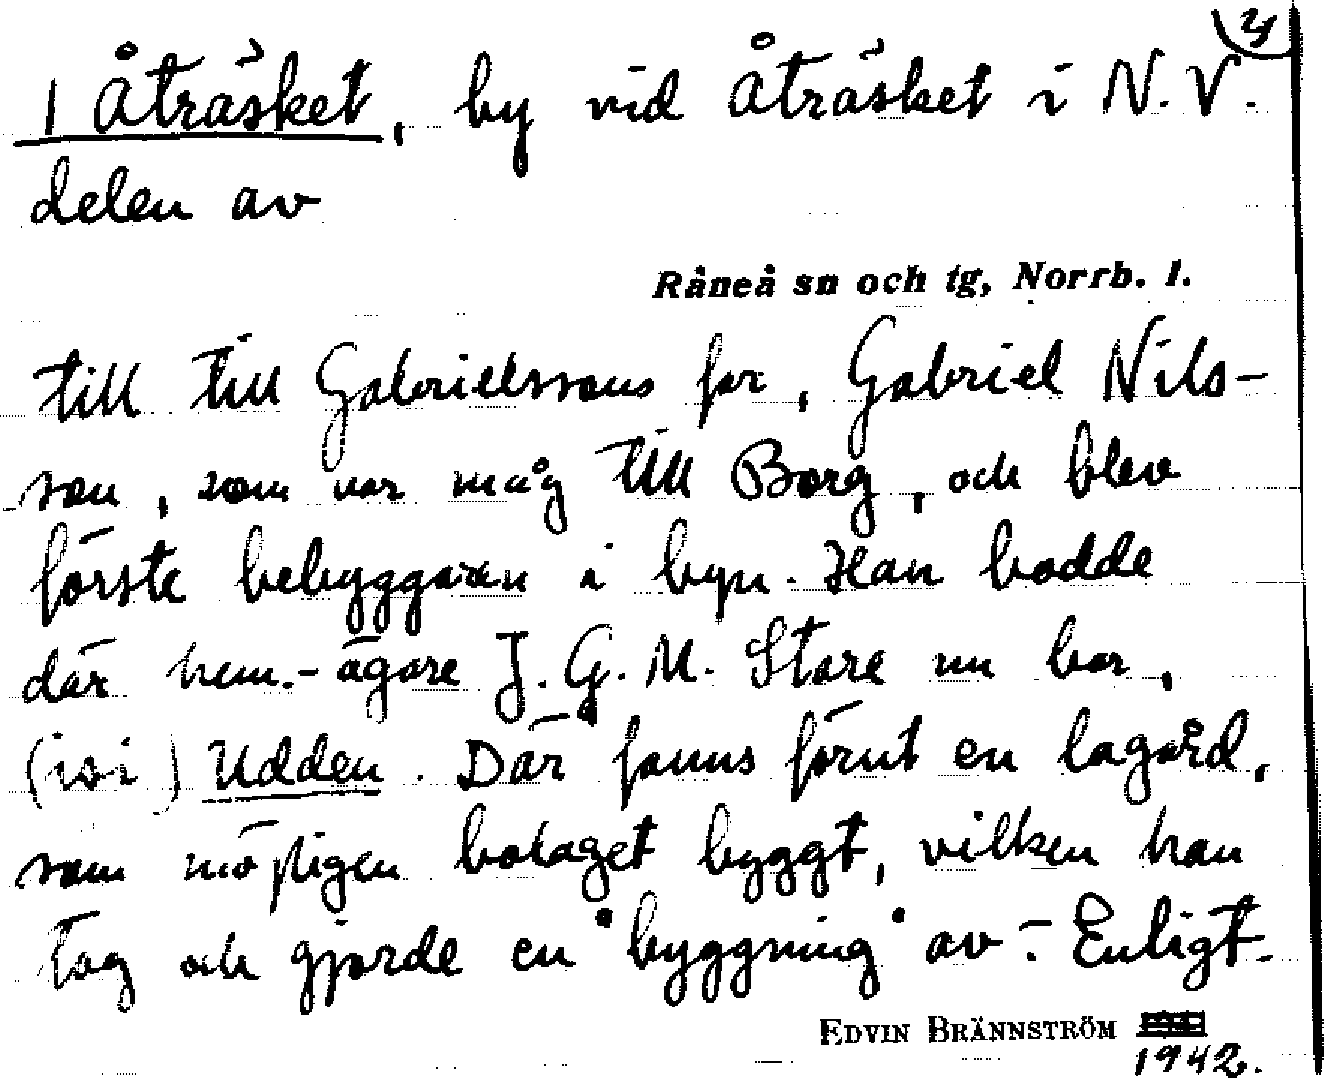 1 Åträsket, by vid Åträsket i N.V.
delen av
Råneå sn och tg, Norrb. l.
till till Gabrielssons far, Gabriel Nils-
son, som var måg till Borg, och blev
förste bebyggaren i byn. Han bodde
där hem.-ägare J. G. M. Stare nu bor,
(isi) Udden. Där fanns förut en lagård,
som möjligen bolaget byggt, vilken han
tog och gjorde en "byggning" av. - Enligt
EDVIN BRÄNNSTRÖM
1942.